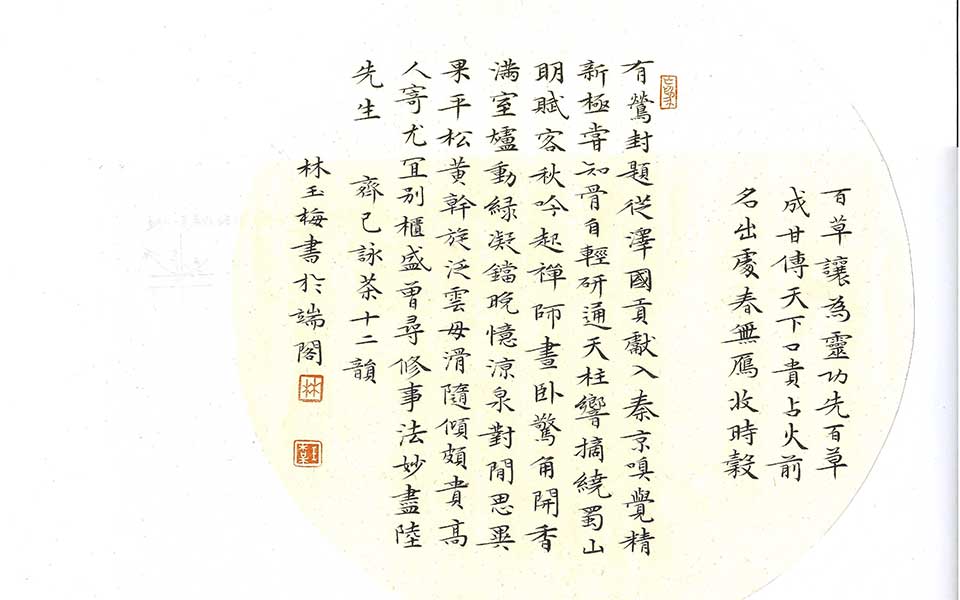 百草讓為靈功先百草
成甘傳天下口貴占火前
名出處春無鴈收時穀
有鶯封題從澤國貢獻入秦京嗅覺精
新極嘗知骨自輕研通天柱響摘繞蜀山
明賦客秋吟起禪師晝卧驚角開香
满室爐動緑凝鐺晚憶涼泉對閒思異
果平松黃幹旋泛雲母滑隨傾頗貴高
人寄尤宜別櫃盛曾尋修事法妙盡陸
先生 齊己詠茶十二韻
林玉梅書於端閣
林